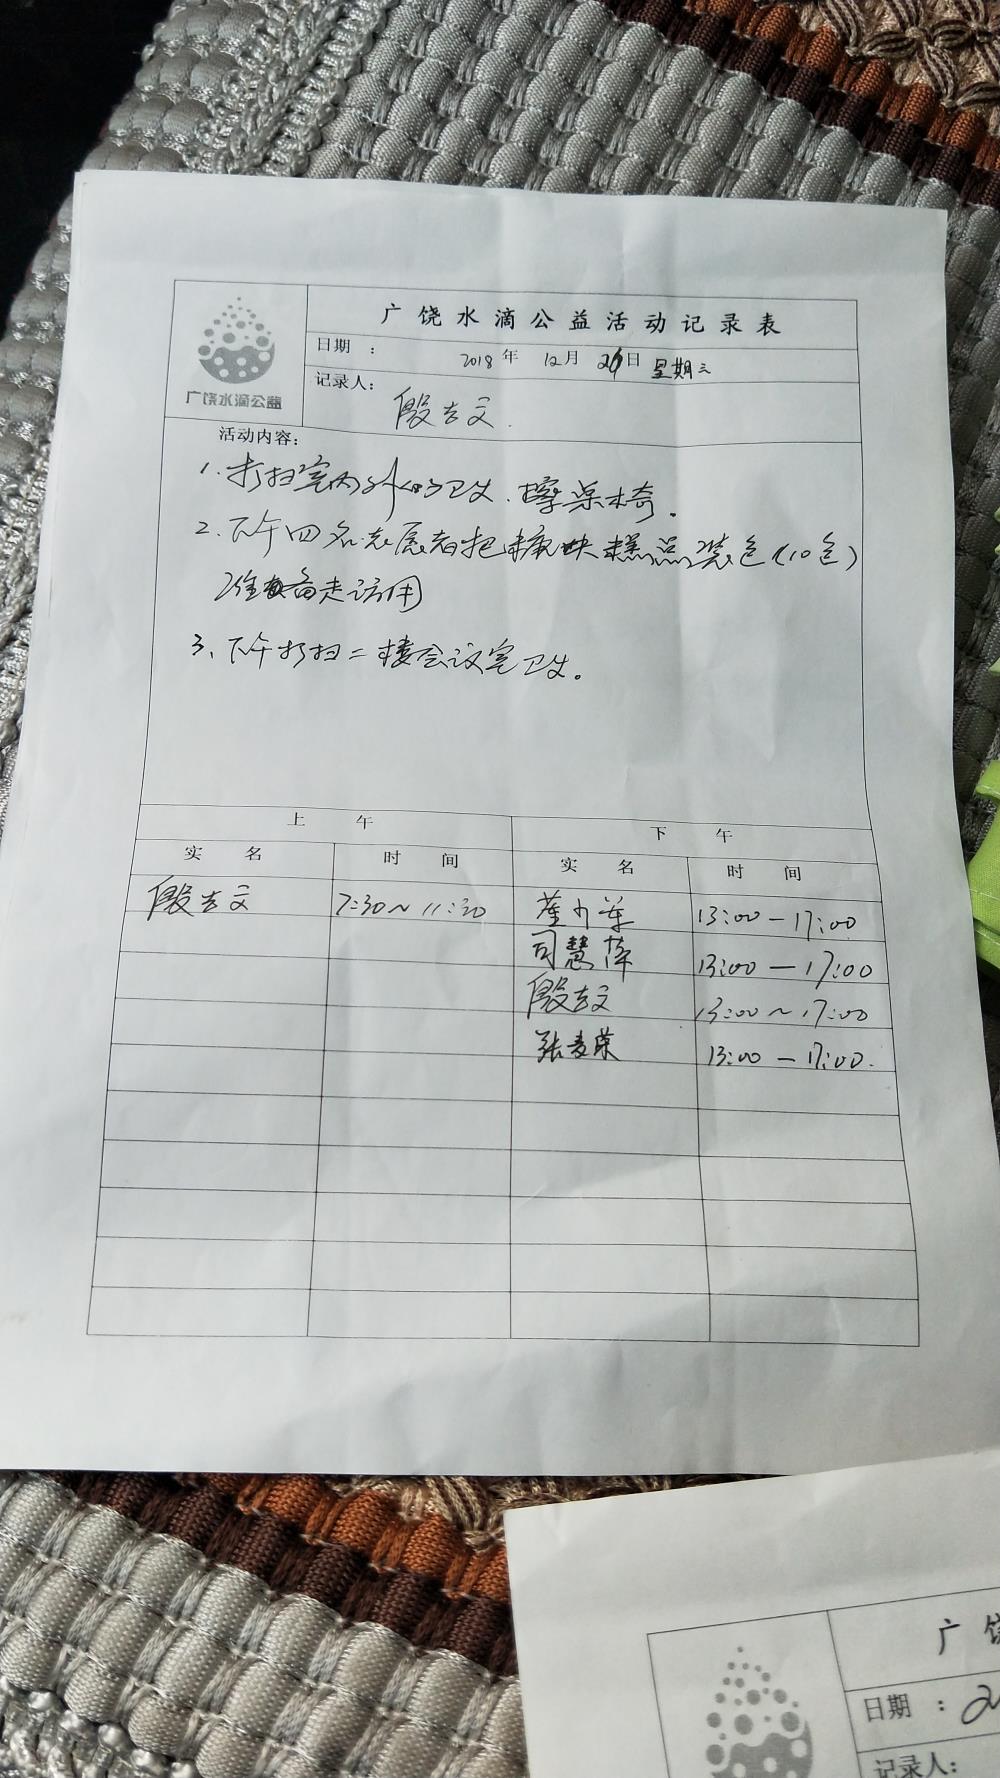 广饶水滴公益活动记录表
日期：2018年12月26日 星期三
广饶水滴公益
记录人：殷吉文.
活动内容：
1.打扫室内外的卫生.擦桌椅。
2.下午四名志愿者把 糕点装包(10包)
准备走访用
3、下午打扫二楼会议室卫生。
上午 下午
实名 时间 实名 时间
殷吉文 7:30~11:30 13:00-17:00
司慧萍 13:00-17:00
殷吉文 13:00~17:00
张麦荣 13:00-17:00.
广饶
日期：2
记录人：